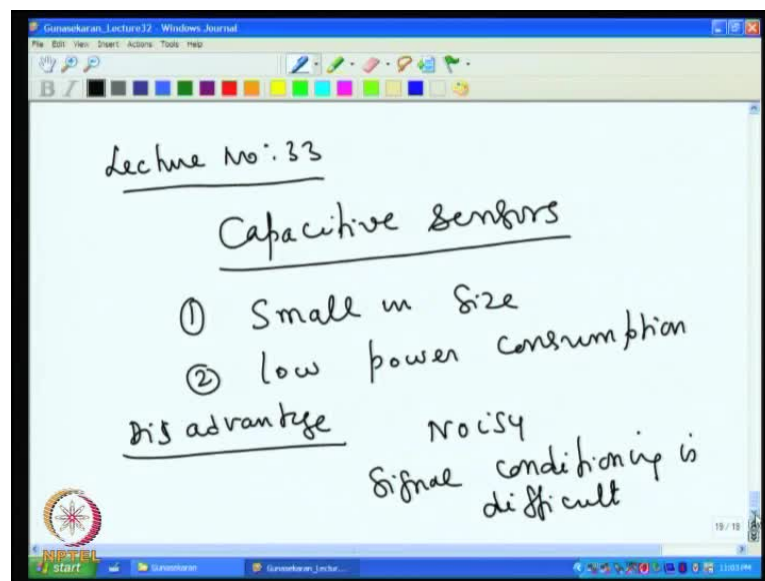 Gunasekaran_Lecture32 - Windows Journal
File Edit View Insert Actions Tools Help
B I
Lecture No: 33
Capacitive sensors
① Small in size
② low power consumption
Disadvantage
Noisy
Signal conditioning is
difficult
19 / 19
NPTEL
start Gunasekaran Gunasekaran_Lectur... 11:03 PM